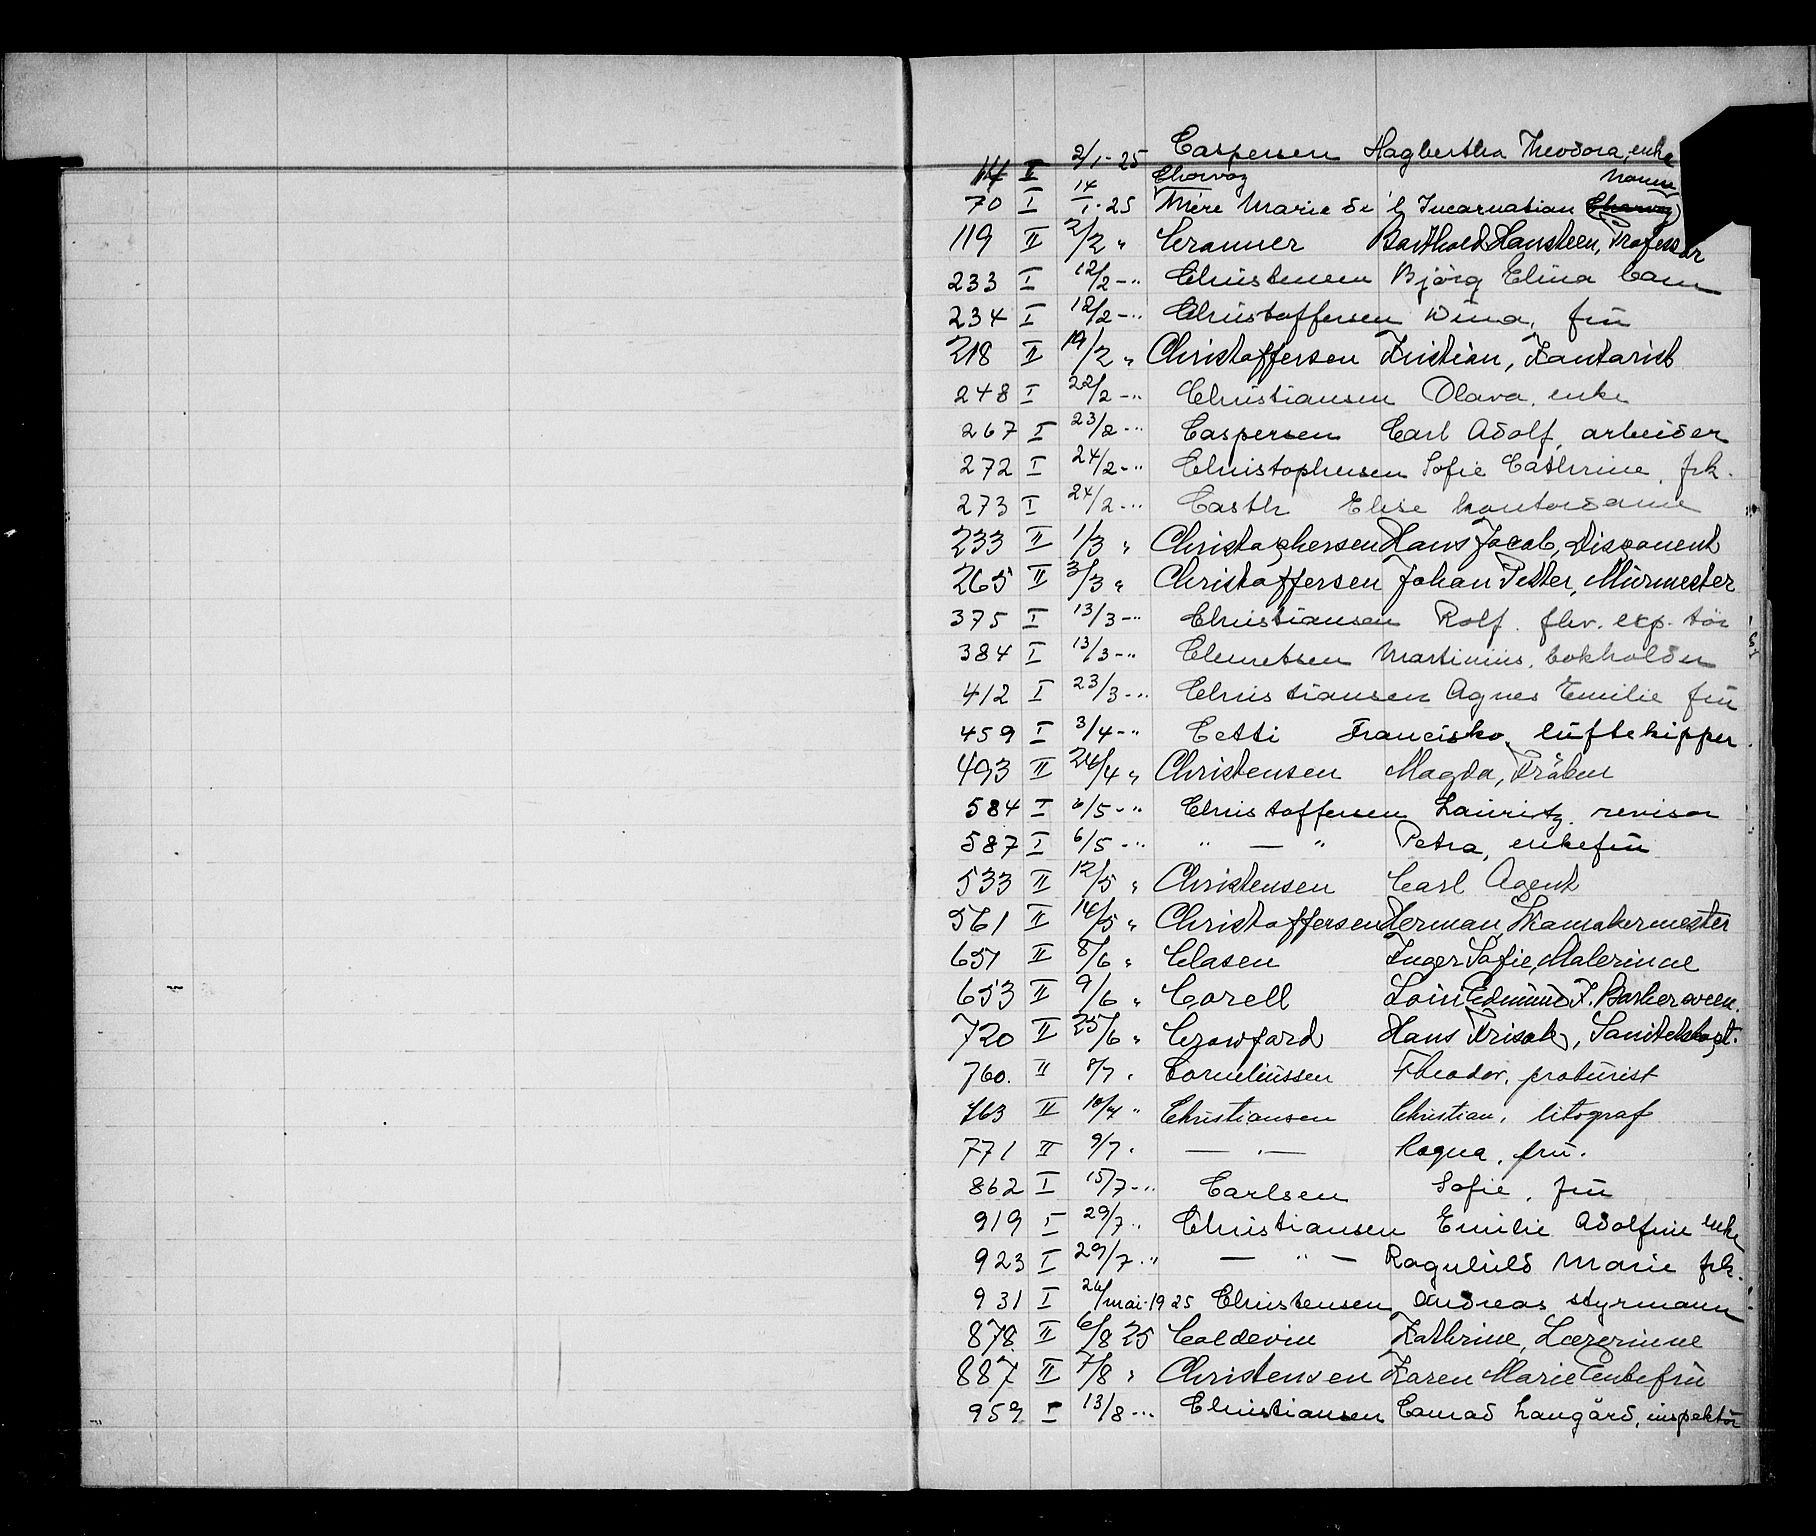 14 II 2/1-25 Caspersen Hagbertha Theodora, enke
Charvoz nonne
70 I 14/1.25 Mère Marie de l'Incarnation
119 II 2/2 " Cranner Barthold Hansteen, Professor
233 I 12/2-" Christensen Bjørg Elina barn
234 I 12/2-" Christoffersen Wina, frü
218 II 19/2 " Christoffersen Kristian, Kontorist
248 I 22/2-" Christiansen Olava, enke
267 I 23/2-" Caspersen Carl Adolf, arbeider
272 I 24/2-" Christophersen Sofie Cathrine, frk.
273 I 24/2-" Casth Elise kontordame
233 II 1/3 " Christophersen Hans Jacob, Disponent
265 II 3/3 " Christoffersen Johan Petter, Mürmester
375 I 13/3-" Christiansen Rolf. fhv. exp.tör
384 I 13/3-" Clemetsen Martinius, bokholder
412 I 23/3-" Christiansen Agnes Emilie frü
459 I 3/4-" Cetti Francisko, lüftskipper
493 II 24/4 " Christensen Magda, Fröken
584 I 6/5-" Christoffersen Lauritz, revisor
587 I 6/5-" " — " Petra, enkefrü
533 II 12/5 " Christensen Carl Agent
561 II 14/5 " Christoffersen Herman, Skomakermester
651 II 8/6 " Clasen Inger Sofie, Malerinne
653 II 9/6 " Corell Edmünd F. Barbersven.
720 II 25/6 " Crowfard Hans Krisak, Sanitetskapt.
760. II 8/7 " Corneliüssen Theodor, prokürist
763 II 10/7 " Christiansen Christian, litograf
771 II 9/7 " — " — Ragna, frü.
862 I 15/7-" Carlsen Sofie, frü
919 I 29/7 " Christiansen Emilie Adolfine enke
923 I 29/7 " — " — Ragnhild Marie frk.
931 I 26/mai-1925 Christensen Andreas styrmann
878 II 6/8 25 Coldevin Kathrine, Lærerinne
887 II 7/8 " Christensen Karen Marie Enkefrü
959 I 13/8-" Christiansen Conrad Langård, inspektör